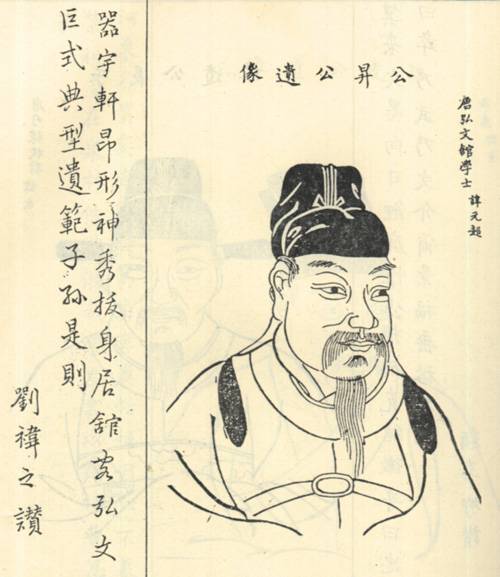 唐弘文館學士 諱元超
公昇公遺像
器宇軒昂形神秀拔身居舘客弘文
巨式典型遺範子孫是則
劉禕之讃